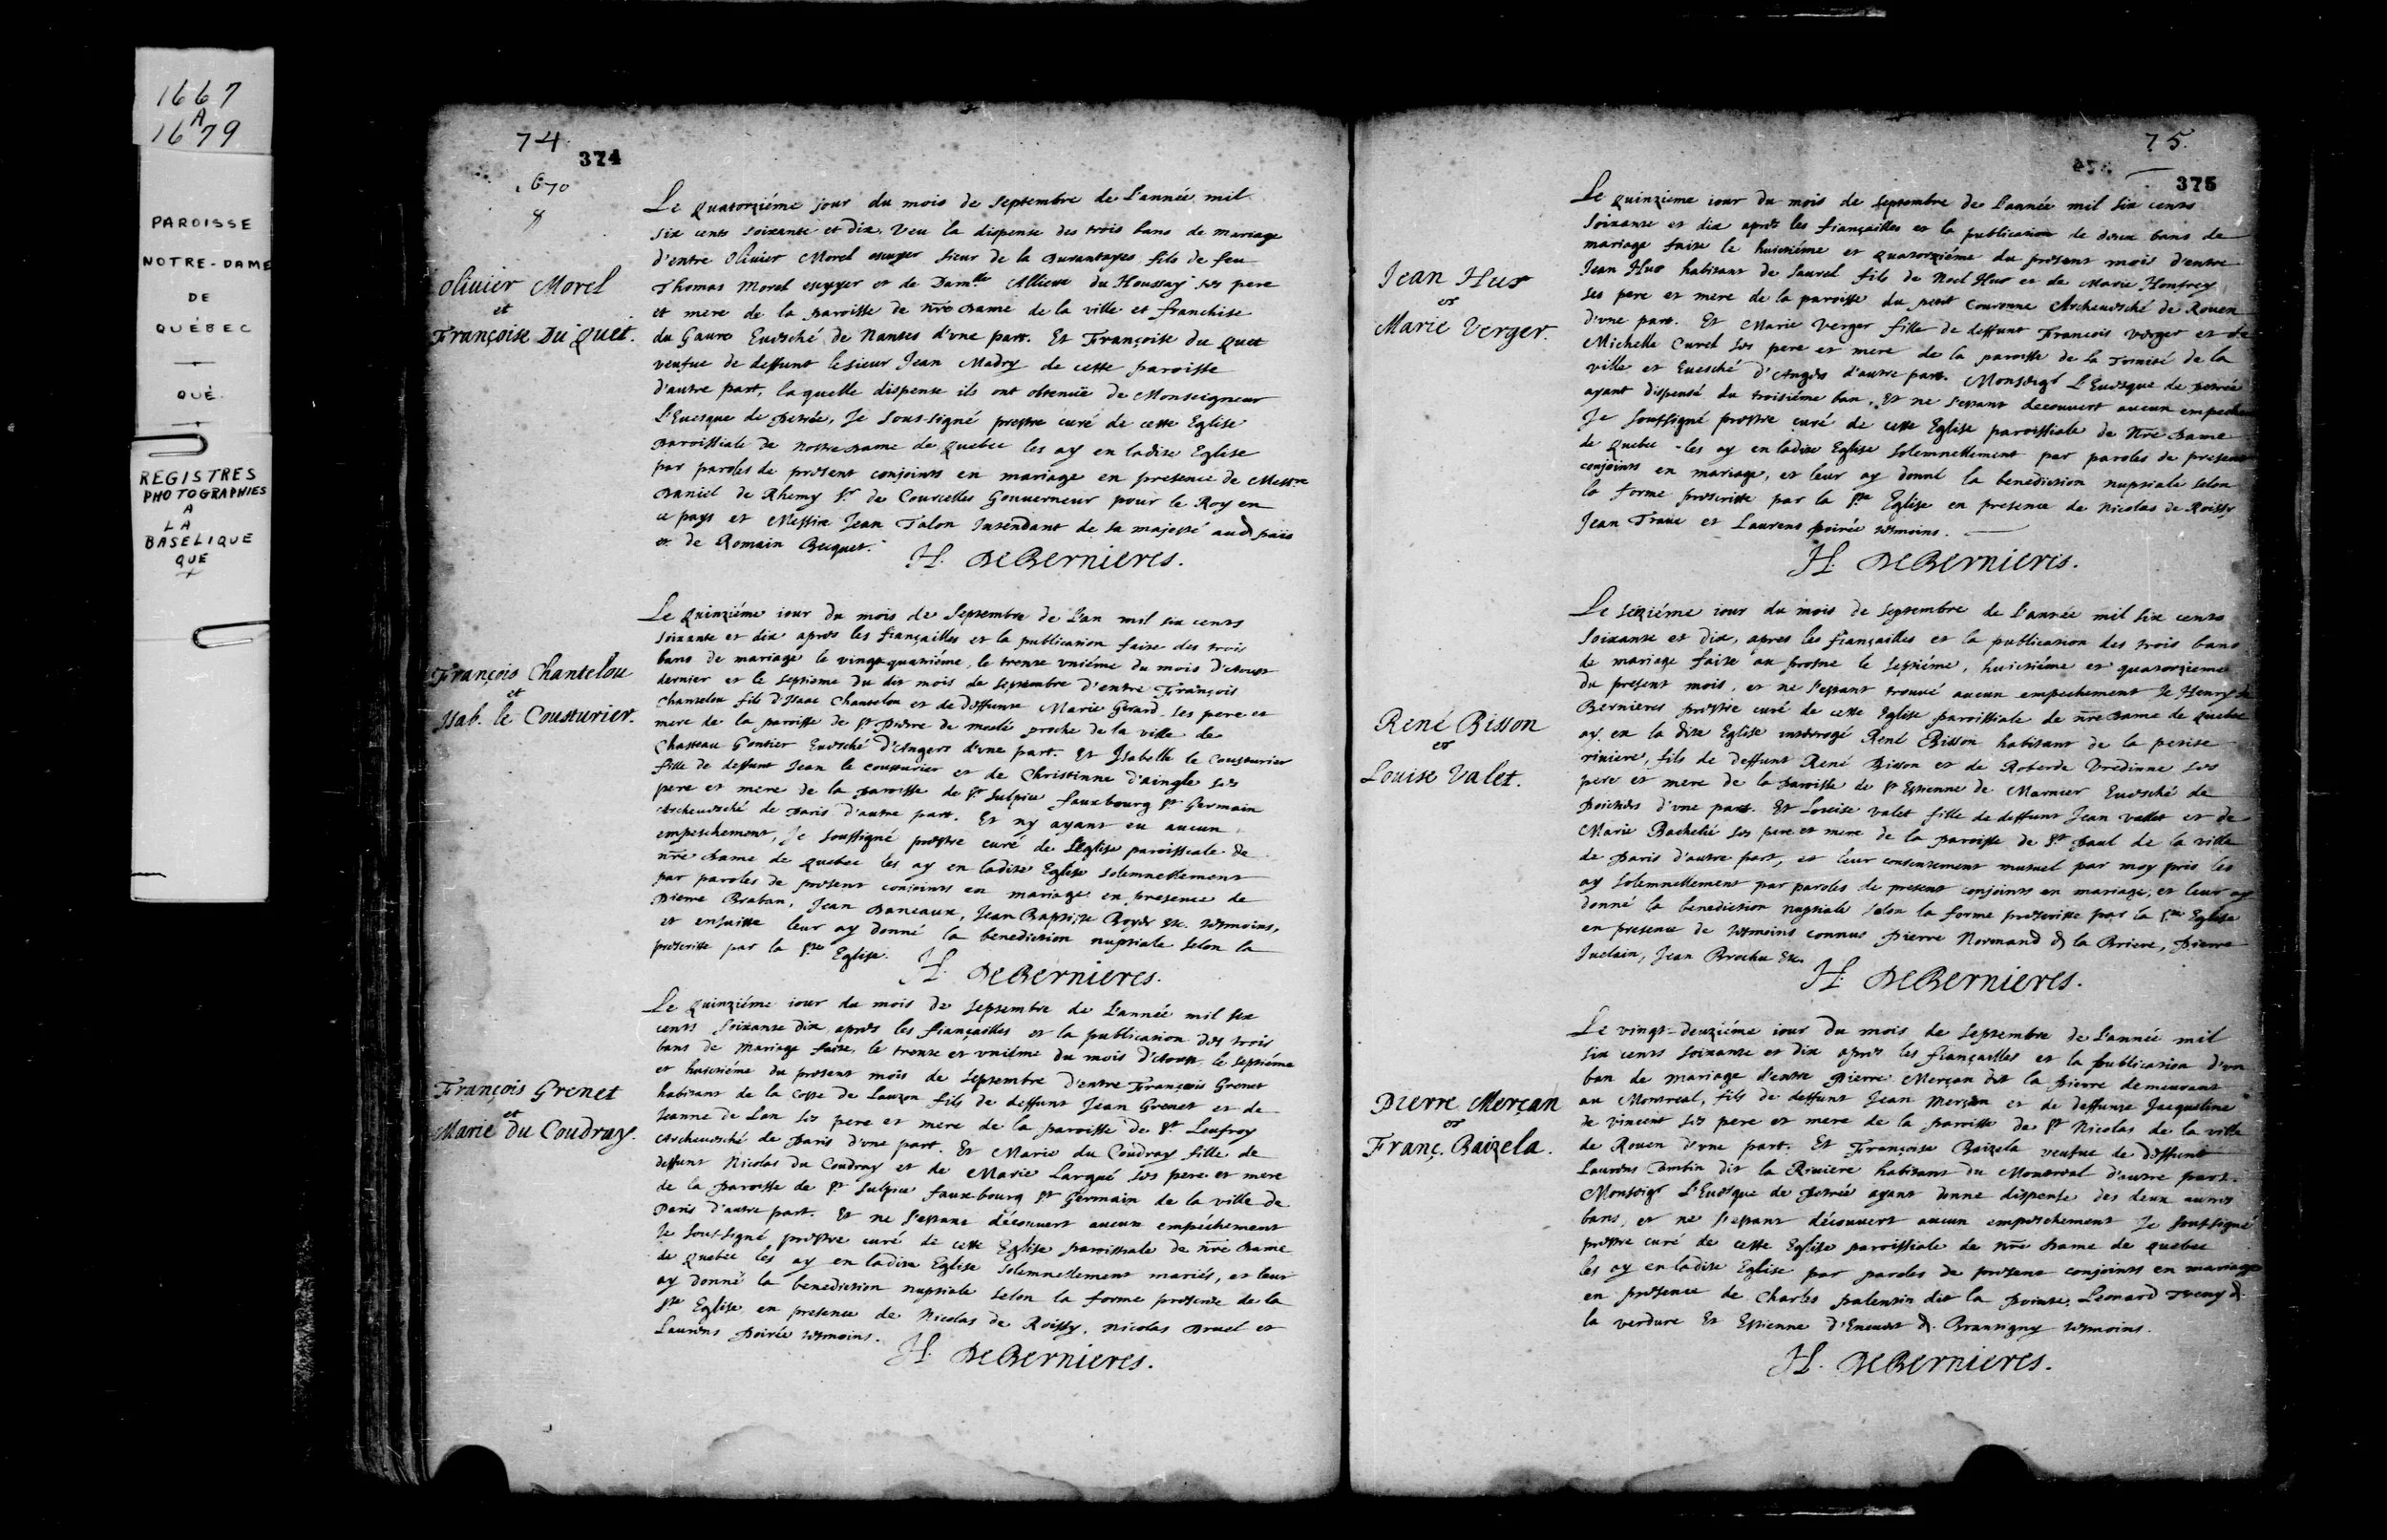 1667
A
1679
PAROISSE
NOTRE-DAME
DE
QUÉBEC
QUÉ.
REGISTRES
PHOTOGRAPHIES
A
LA
BASELIQUE
QUE
74
374
1670
Olivier Morel
et
Françoise Du Quet.
Le Quatorziéme jour du mois de Septembre de L'année mil
six cents soixante et dix. Veu la dispense des trois bans de mariage
d'entre Olivier Morel escuyer sieur de la Durantayes fils de feu
Thomas Morel escuyer et de Damlle Alliette du Houssay ses pere
et mere de la paroisse de nre Dame de la ville et franchise
du Gavre Evesché de Nantes d'une part. Et Françoise du Quet
veufve de deffunt le sieur Jean Madry de cette paroisse
d'autre part, laquelle dispense ils ont obtenuë de Monseigneur
L'Evesque de Petrée, Je Sous-signé prestre curé de cette Eglise
paroissiale de Nostre Dame de Quebec les ay en ladite Eglise
par paroles de present conjoints en mariage en presence de Messre
Daniel de Rhemy Sr de Courcelles Gouverneur pour le Roy en
ce pays et Messire Jean Talon Intendant de sa majesté aud païs
et de Romain Becquet.
H. DeBernieres.
François Chantelou
et
Isab. le Cousturier.
Le Quinziéme iour du mois de Septembre de L'an mil six cents
soixante et dix apres les fiançailles et la publication faite des trois
bans de mariage le vingt quatriéme, le trente uniéme du mois d'Aoust
dernier et le septieme du dit mois de Septembre d'entre François
Chantelou fils d'Isaac Chantelou et de deffunte Marie Girard ses pere et
mere de la paroisse de St Pierre de proche de la ville de
Chasteau Gontier Evesché d'Angers d'une part. Et Isabelle le Cousturier
fille de deffunt Jean le cousturier et de Christinne d'aingle ses
pere et mere de la paroisse de St Sulpice fauxbourg St Germain
Archevesché de Paris d'autre part. Et ny ayant eu aucun
empeschement, Je soussigné prestre curé de L'Eglise paroissiale de
nre dame de Quebec les ay en ladite Eglise solemnellement
par paroles de present conjoints en mariage en presence de
Pierre Braban, Jean Daneaux, Jean Baptiste Boyer &c. tesmoins,
et ensuitte leur ay donné la benediction nuptiale selon la
prescritte par la Ste Eglise.
H. DeBernieres.
François Grenet
et
Marie du Coudray.
Le Quinziéme iour du mois de Septembre de L'année mil six
cents soixante dix, apres les fiançailles et la publication des trois
bans de mariage faite, le trente et uniéme du mois d'Aoust le septiéme
et huictiéme du present mois de Septembre d'entre François Grenet
habitant de la Coste de Lauzon fils de deffunt Jean Grenet et de
Jeanne de Lan ses pere et mere de la paroisse de St Leufroy
Archevesché de Paris d'une part. Et Marie du Coudray fille de
deffunt Nicolas du Coudray et de Marie Larqué ses pere et mere
de la paroisse de St Sulpice fauxbourg St Germain de la ville de
Paris d'autre part. Et ne s'estant découvert aucun empéchement
Je sous-signé prestre curé de cette Eglise paroissiale de nre Dame
de Quebec les ay en ladite Eglise solemnellement mariés, et leur
ay donné la benediction nuptiale selon la forme prescrite de la
Ste Eglise en presence de Nicolas de Roissy, Nicolas Druel et
Laurens Poirée tesmoins.
H. DeBernieres.
75.
375
Jean Hus
et
Marie Verger.
Le quinzieme iour du mois de Septembre de L'année mil six cents
soixante et dix apres les fiançailles et la publication de deux bans de
mariage faite le huictiéme et quatorziéme du present mois d'entre
Jean Hus habitant de Saurel fils de Noel Hus et de Marie Homfrey
ses pere et mere de la paroisse du petit Couronne Archevesché de Rouen
d'une part. Et Marie Verger fille de deffunt Francois Verger et de
Michelle Curel ses pere et mere de la paroisse de la Trinité de la
ville et Evesché d'Angers d'autre part. Monseigr L'Evesque de Petrée
ayant dispensé du troisiéme ban, Et ne s'estant decouvert aucun
Je soussigné prestre curé de cette Eglise paroissiale de Nre Dame
de Quebec les ay en ladite Eglise solemnellement par paroles de present
conjoints en mariage, et leur ay donné la benediction nuptiale selon
la forme prescritte par la Ste Eglise en presence de Nicolas de Roissy
Jean et Laurens Poirée tesmoins.
H. DeBernieres.
René Bisson
et
Louise Valet.
Le seiziéme iour du mois de Septembre de L'année mil six cents
soixante et dix, apres les fiançailles et la publication des trois bans
de mariage faite au prosne le septiéme, huictiéme et quatorzieme
du present mois, et ne s'estant trouvé aucun empechement Je Henry de
Bernieres prestre curé de cette Eglise paroissiale de nre Dame de Quebec
ay en la dite Eglise interrogé René Bisson habitant de la petite
riviere, fils de deffunt René Bisson et de Roberde Vredinne ses
pere et mere de la paroisse de St Estienne de Marnier Evesché de
Poictiers d'une part. Et Louise Valet fille de deffunt Jean vallet et de
Marie Bachelié ses pere et mere de la paroisse de St Paul de la ville
de Paris d'autre part, et leur consentement mutuel par moy pris les
ay solemnellement par paroles de present conjoints en mariage, et leur ay
donné la benediction nuptiale selon la forme prescritte par la Ste Eglise
en presence de tesmoins connus Pierre Normand d la Briere, Pierre
Juelain, Jean Brochu &c.
H. DeBernieres.
Pierre Merçan
et
Franç. Baizela.
Le vingt-deuziéme iour du mois de Septembre de L'année mil
six cents soixante et dix apres les fiançailles et la publication d'un
ban de mariage d'entre Pierre Merçan dit la Pierre demeurant
au Montreal, fils de deffunt Jean Merçan et de deffunte Jacqueline
de Vincent ses pere et mere de la paroisse de St Nicolas de la ville
de Rouen d'une part. Et Françoise Baizela veufve de deffunt
Laurens Ambin dit la Riviere habitant du Montreal d'autre part.
Monseigr L'Evesque de Petrée ayant donné dispense des deux autres
bans, et ne s'estant découvert aucun empeschement Je sous-signé
prestre curé de cette Eglise paroissiale de nre Dame de Quebec
les ay en ladite Eglise par paroles de present conjoints en mariage
en presence de Charles palentin dit la pointe, Leonard Tresny d.
la verdure Et Estienne d'Enevert d. Brantigny tesmoins.
H. DeBernieres.